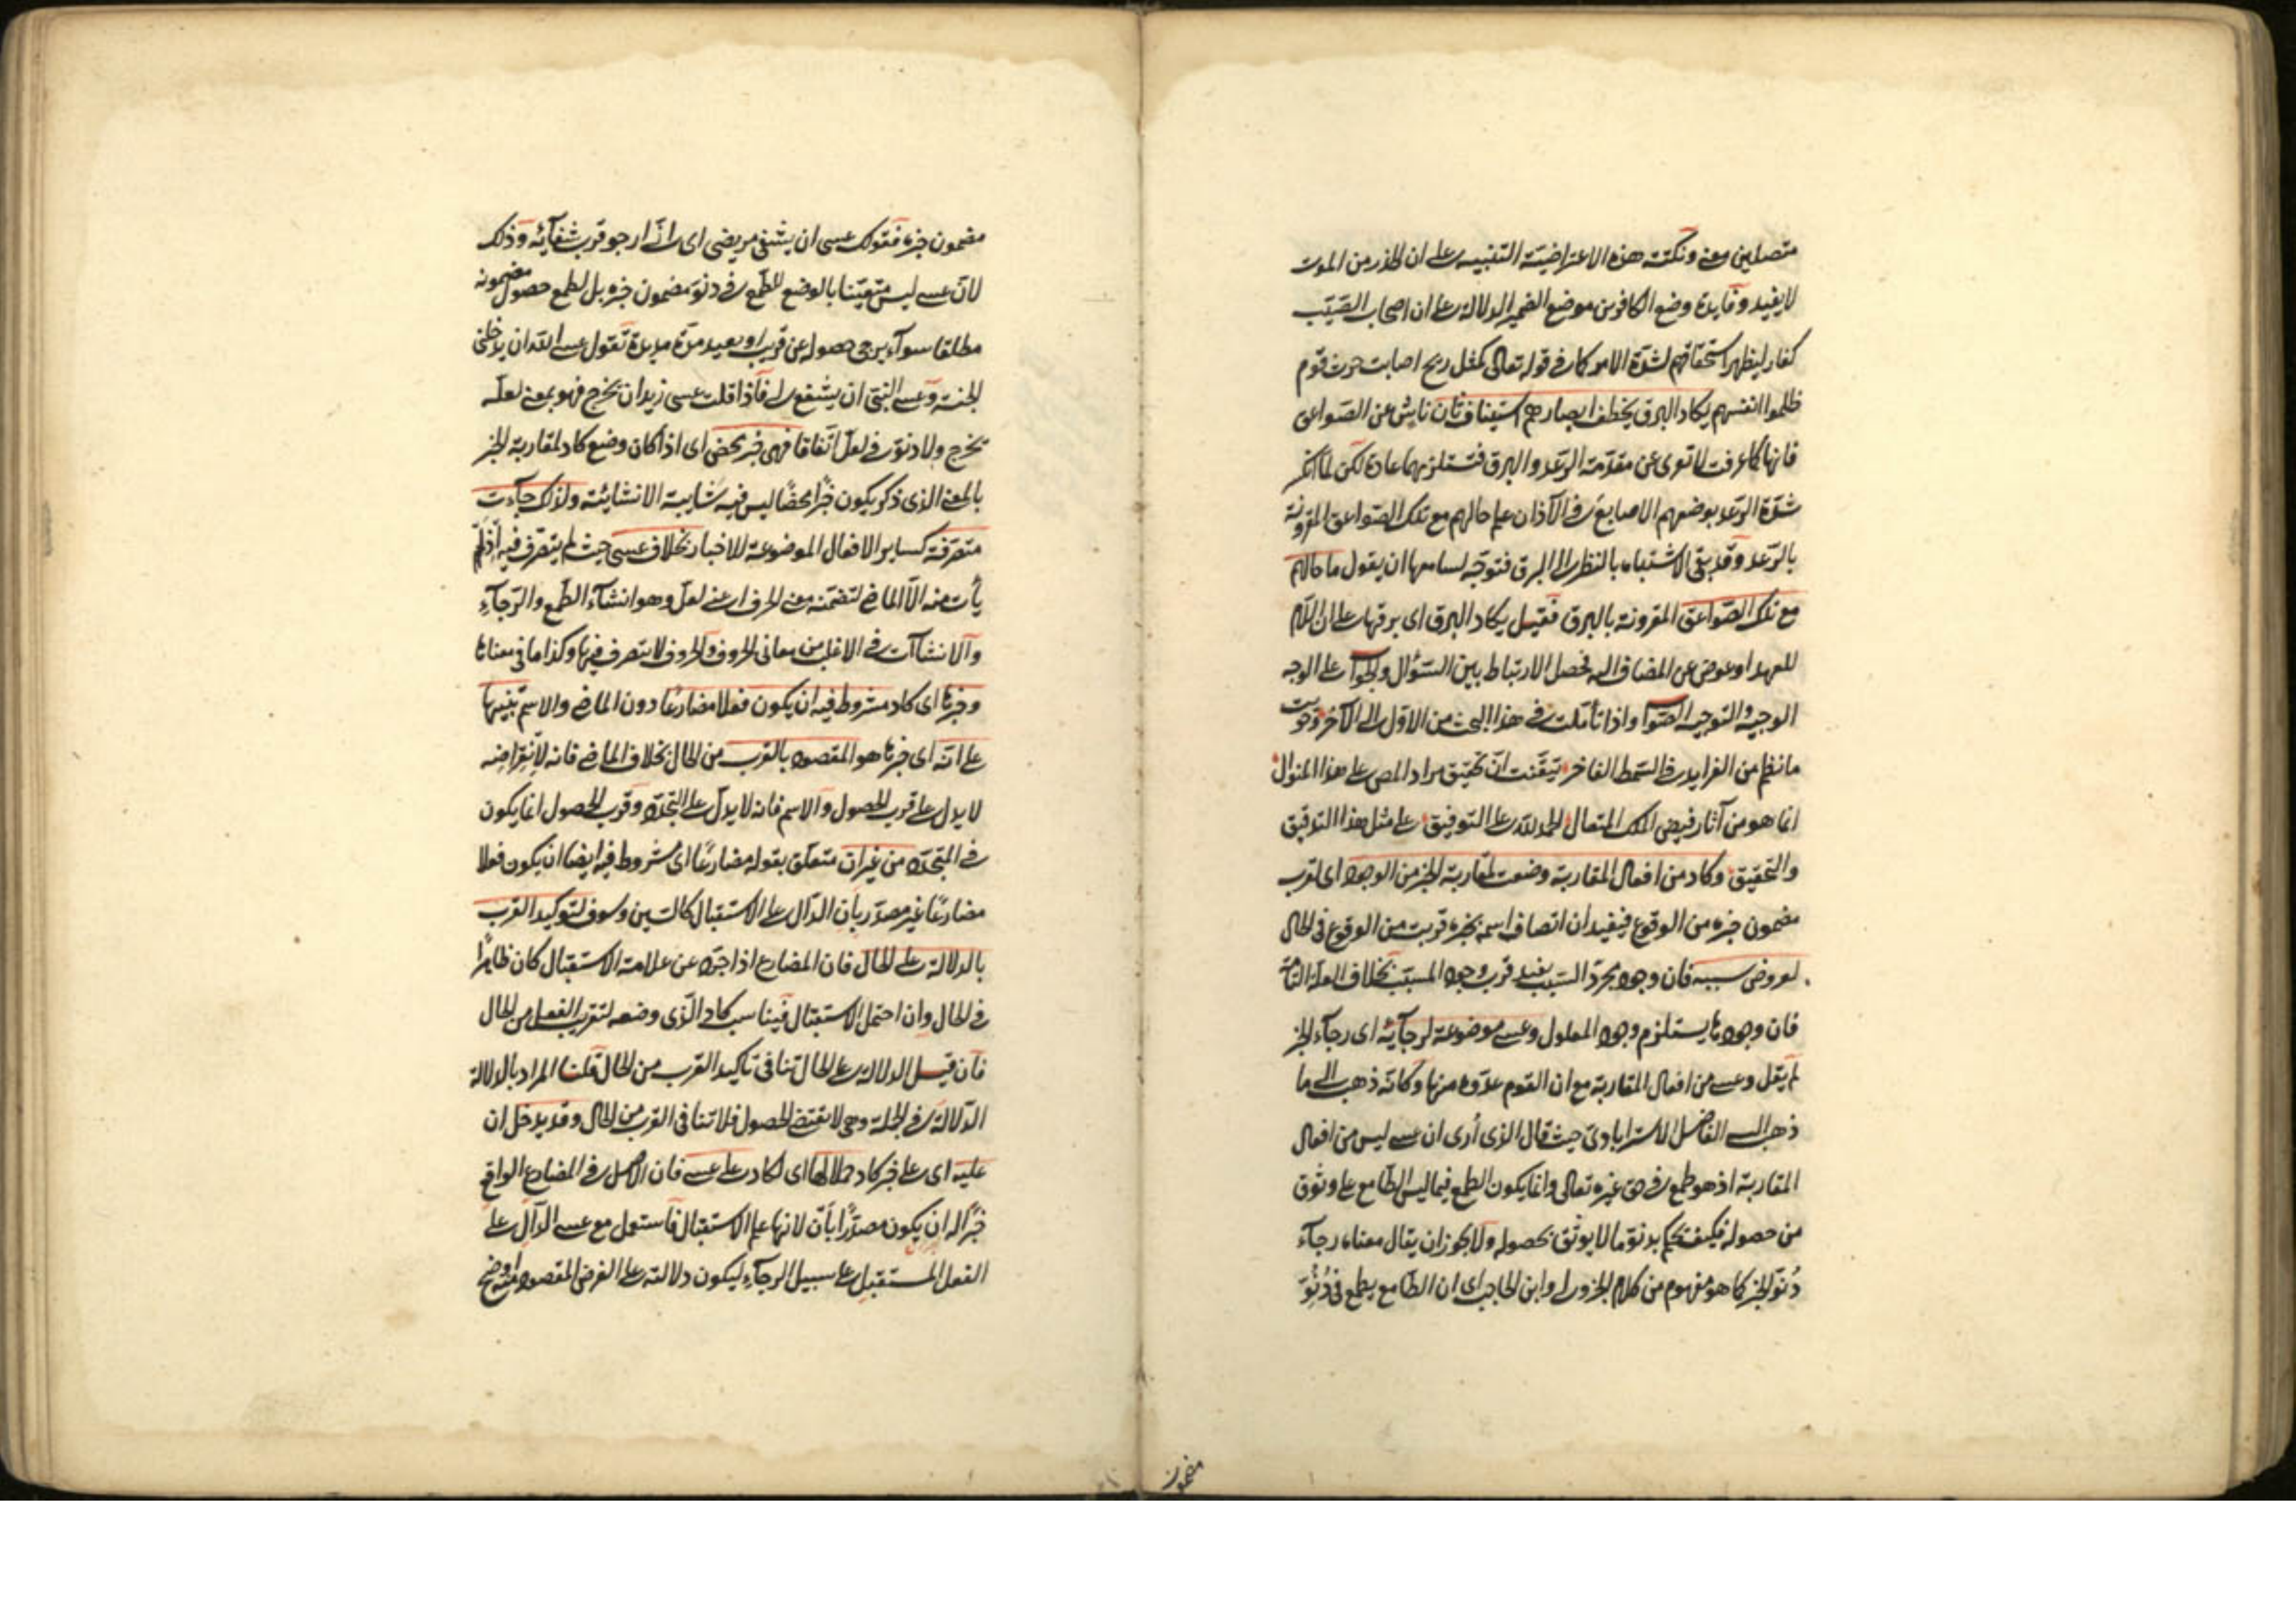 متصلين معنى ونكتة هذه الاعتراضية التنبيه على ان الحذر من الموت
لا يفيد وفايدة وضع الكافرين موضع الضمير الدلالة على ان اصحاب الصيب
كفار ليظهر استحقاقهم لشدة الامر كما في قوله تعالى كمثل ريح اصابت حرث قوم
ظلموا انفسهم يكاد البرق يخطف ابصارهم استيناف ثان ناش عن الصواعق
فانها كما عرفت لا تعرى عن مقدمة الرعد والبرق فتستلزمهما عادة لكن لما
شدة الرعد بوضعهم الاصابع في الآذان علم حالهم مع تلك الصواعق المقرونة
بالرعد وقد بقى الاشتباه بالنظر الى البرق فتوجه لسامعها ان يقول ما حالهم
مع تلك الصواعق المقرونة بالبرق فقيل يكاد البرق اى برقها على ان اللام
للعهد او عوض عن المضاف اليه فحصل الارتباط بين السؤال والجواب على الوجه
الوجيه والتوجيه الصواب واذا تأملت في هذا البحث من الاول الى الآخر وحويت
ما نظم من الفرايد في السمط الفاخر تيقنت ان تحقيق مراد المص على هذا المنوال
انما هو من آثار فيض الملك المتعال الحمد لله على التوفيق على مثل هذا التدقيق
والتحقيق وكاد من افعال المقاربة وضعت لمقاربة الخبر من الوجود اى لقرب
مضمون خبره من الوقوع فيفيد ان اتصاف اسمه بخبره قريب من الوقوع في الحال
لعروض سببه فان وجود مجرد السبب يفيد قرب وجود المسبب بخلاف العلة التامة
فان وجودها يستلزم وجود المعلول وعسى موضوعة لرجائه اى رجاء الخبر
لم يقل وعسى من افعال المقاربة مع ان القوم عدوه منها وكانه ذهب الى ما
ذهب اليه الفاضل الاسترابادى حيث قال الذى أرى ان عسى ليس من افعال
المقاربة اذ هو طمع في حق غيره تعالى وانما يكون الطمع فيما ليس الطامع على وثوق
من حصوله فكيف يحكم بدنو ما لا يوثق بحصوله ولا يجوز ان يقال معناه رجاء
دنو الخبر كما هو مفهوم من كلام الجزولى وابن الحاجب اى ان الطامع يطمع في دنو
مضمون
مضمون خبره فقولك عسى ان يشفى مريضى اى انى ارجو قرب شفائه وذلك
لان عسى ليس متعينا بالوضع للطمع في دنو مضمون خبره بل لطمع حصول مضمونه
مطلقا سواء يرجى حصوله عن قريب او بعيد مدة مديدة تقول عسى الله ان يدخلنى
الجنة وعسى النبى ان يشفع لى فاذا قلت عسى زيد ان يخرج فهو بمعنى لعله
يخرج ولا دنو في لعل اتفاقا فهى خبر محض اى اذا كان وضع كاد لمقاربة الخبر
بالمعنى الذى ذكر يكون خبرا محضا ليس فيه شايبة الانشائية ولذلك جاءت
متصرفة كساير الافعال الموضوعة للاخبار بخلاف عسى حيث لم يتصرف فيه اذ لم
يأت منه الا الماضى لتضمنه معنى الحرف اعنى لعل وهو انشاء الطمع والرجاء
والانشاآت في الاغلب من معانى الحروف والحروف لا يتصرف فيها وكذا ما في معناها
وخبرها اى كاد مشروط فيه ان يكون فعلا مضارعا دون الماضى والاسم تنبيها
على انه اى خبرها هو المقصود بالقرب من الحال بخلاف الماضى فانه لانقراضه
لا يدل على قرب الحصول والاسم فانه لا يدل على التجدد وقرب الحصول انما يكون
في المتجدد من غير ان متعلق بقوله مضارعا اى مشروط فيه ايضا ان يكون فعلا
مضارعا غير مصدر بان الدال على الاستقبال كالسين وسوف لتوكيد القرب
بالدلالة على الحال فان المضارع اذا جرد عن علامة الاستقبال كان ظاهرا
في الحال وان احتمل الاستقبال فيناسب كاد الذى وضعه لتقريب الفعل من الحال
فان قيل الدلالة على الحال تنافى تاكيد القرب من الحال قلنا المراد بالدلالة
الدلالة في الجملة وهى لا تقتضى الحصول فلا تنافى القرب من الحال وقد يدخل ان
عليه اى على خبر كاد حملا لها اى لكاد على عسى فان الاصل في المضارع الواقع
خبرا له ان يكون مصدرا بان لانها علم الاستقبال فاستعمل مع عسى الدال على
الفعل المستقبل على سبيل الرجاء ليكون دلالته على الغرض المقصود منه اوضح